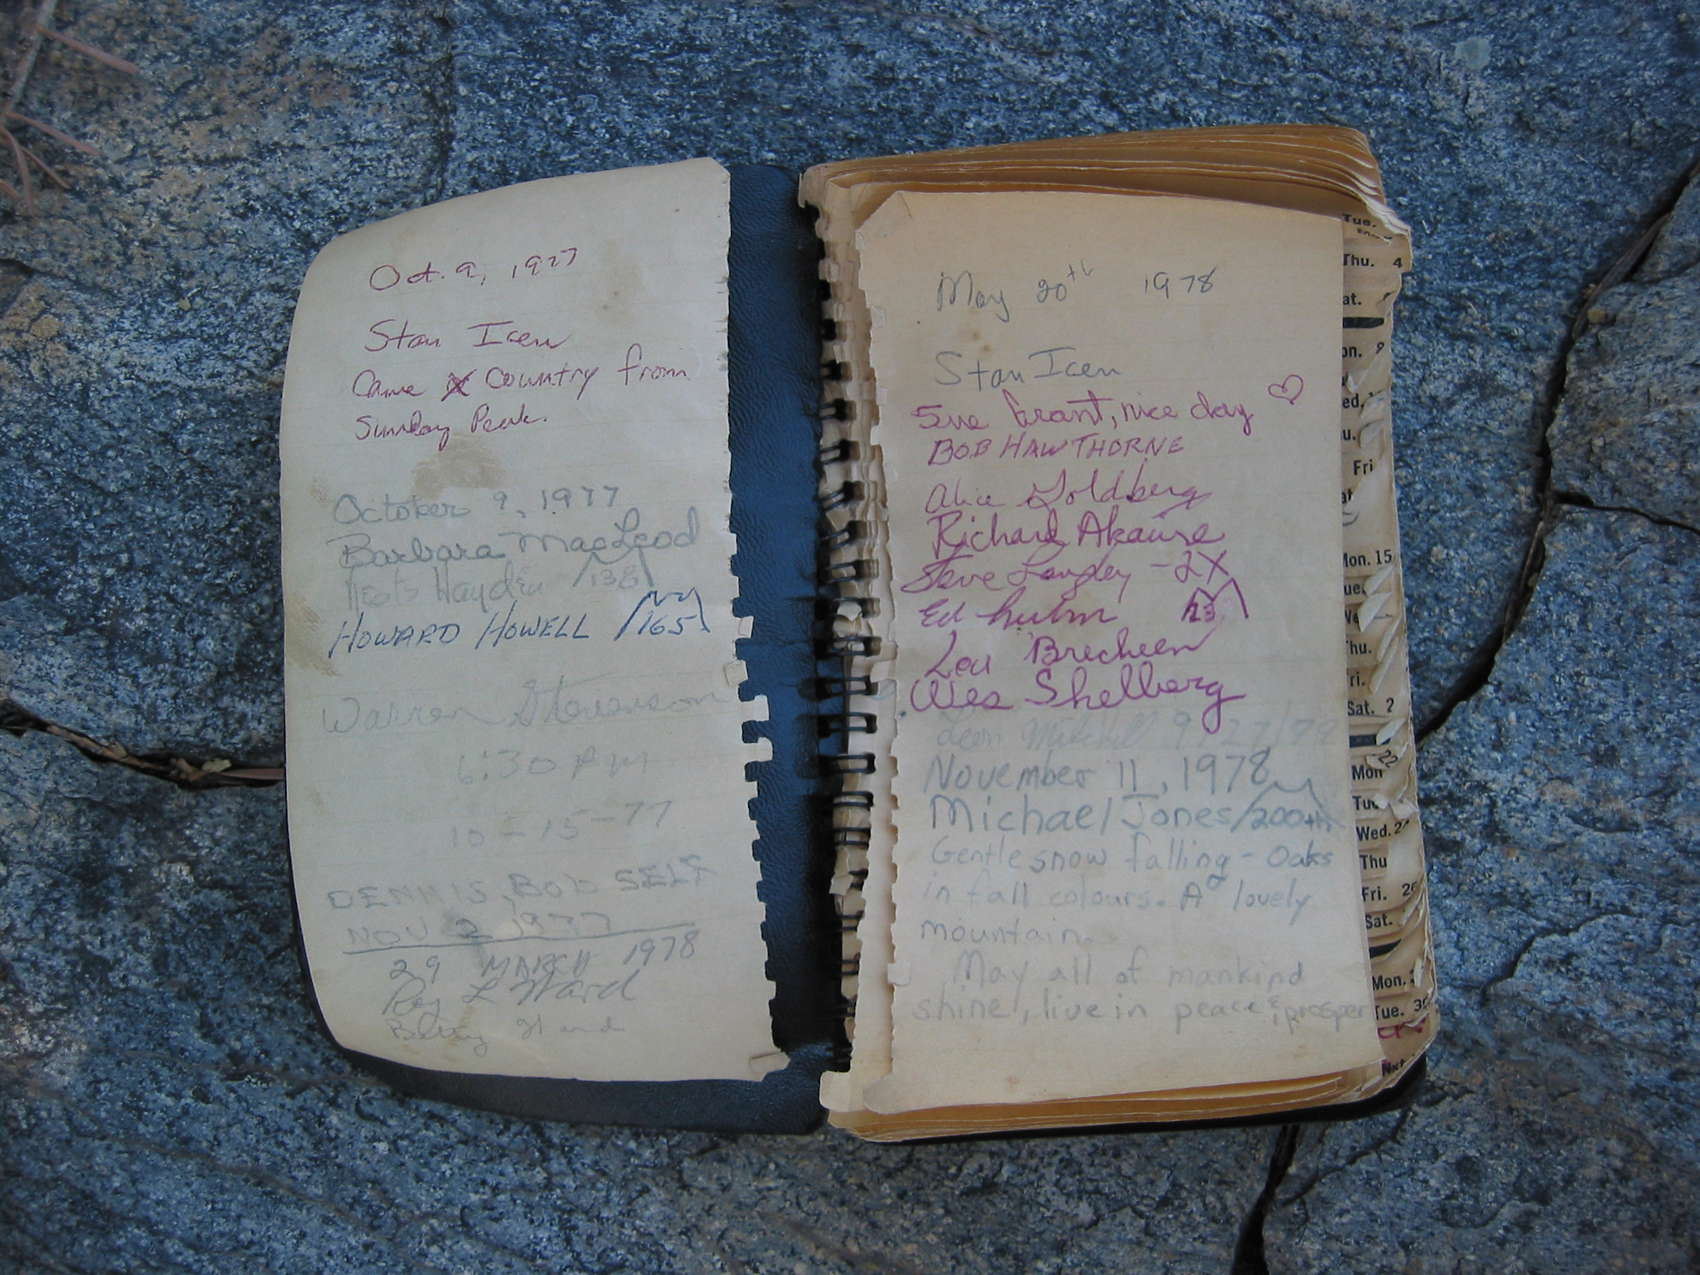 Oct. 9, 1977
Stan Icen
Came X Country from
Sunday Peak.
October 9, 1977
Barbara MacLeod
Hayden 138
HOWARD HOWELL 165
Warren Stevenson
6:30 PM
10-15-77
DENNIS, BOB SELF
NOV 2 1977
29 MARCH 1978
Roy L Ward
May 20th 1978
Stan Icen
Sue Grant, nice day ♡
BOB HAWTHORNE
Alice Goldberg
Richard Akawie
Steve Langley - 2X
Ed 123
Lou Brecheen
Wes Shelberg
Leon Mitchell 9/27/79
November 11, 1978
Michael Jones 200th
Gentle snow falling - Oaks
in fall colours. A lovely
mountain.
May all of mankind
shine, live in peace & prosper
Tue.
Thu. 4
Fri
Mon. 15
Thu.
Fri.
Sat. 2
Mon 22
Tue
Wed. 24
Thu
Fri. 26
Sat.
Mon.
Tue. 30